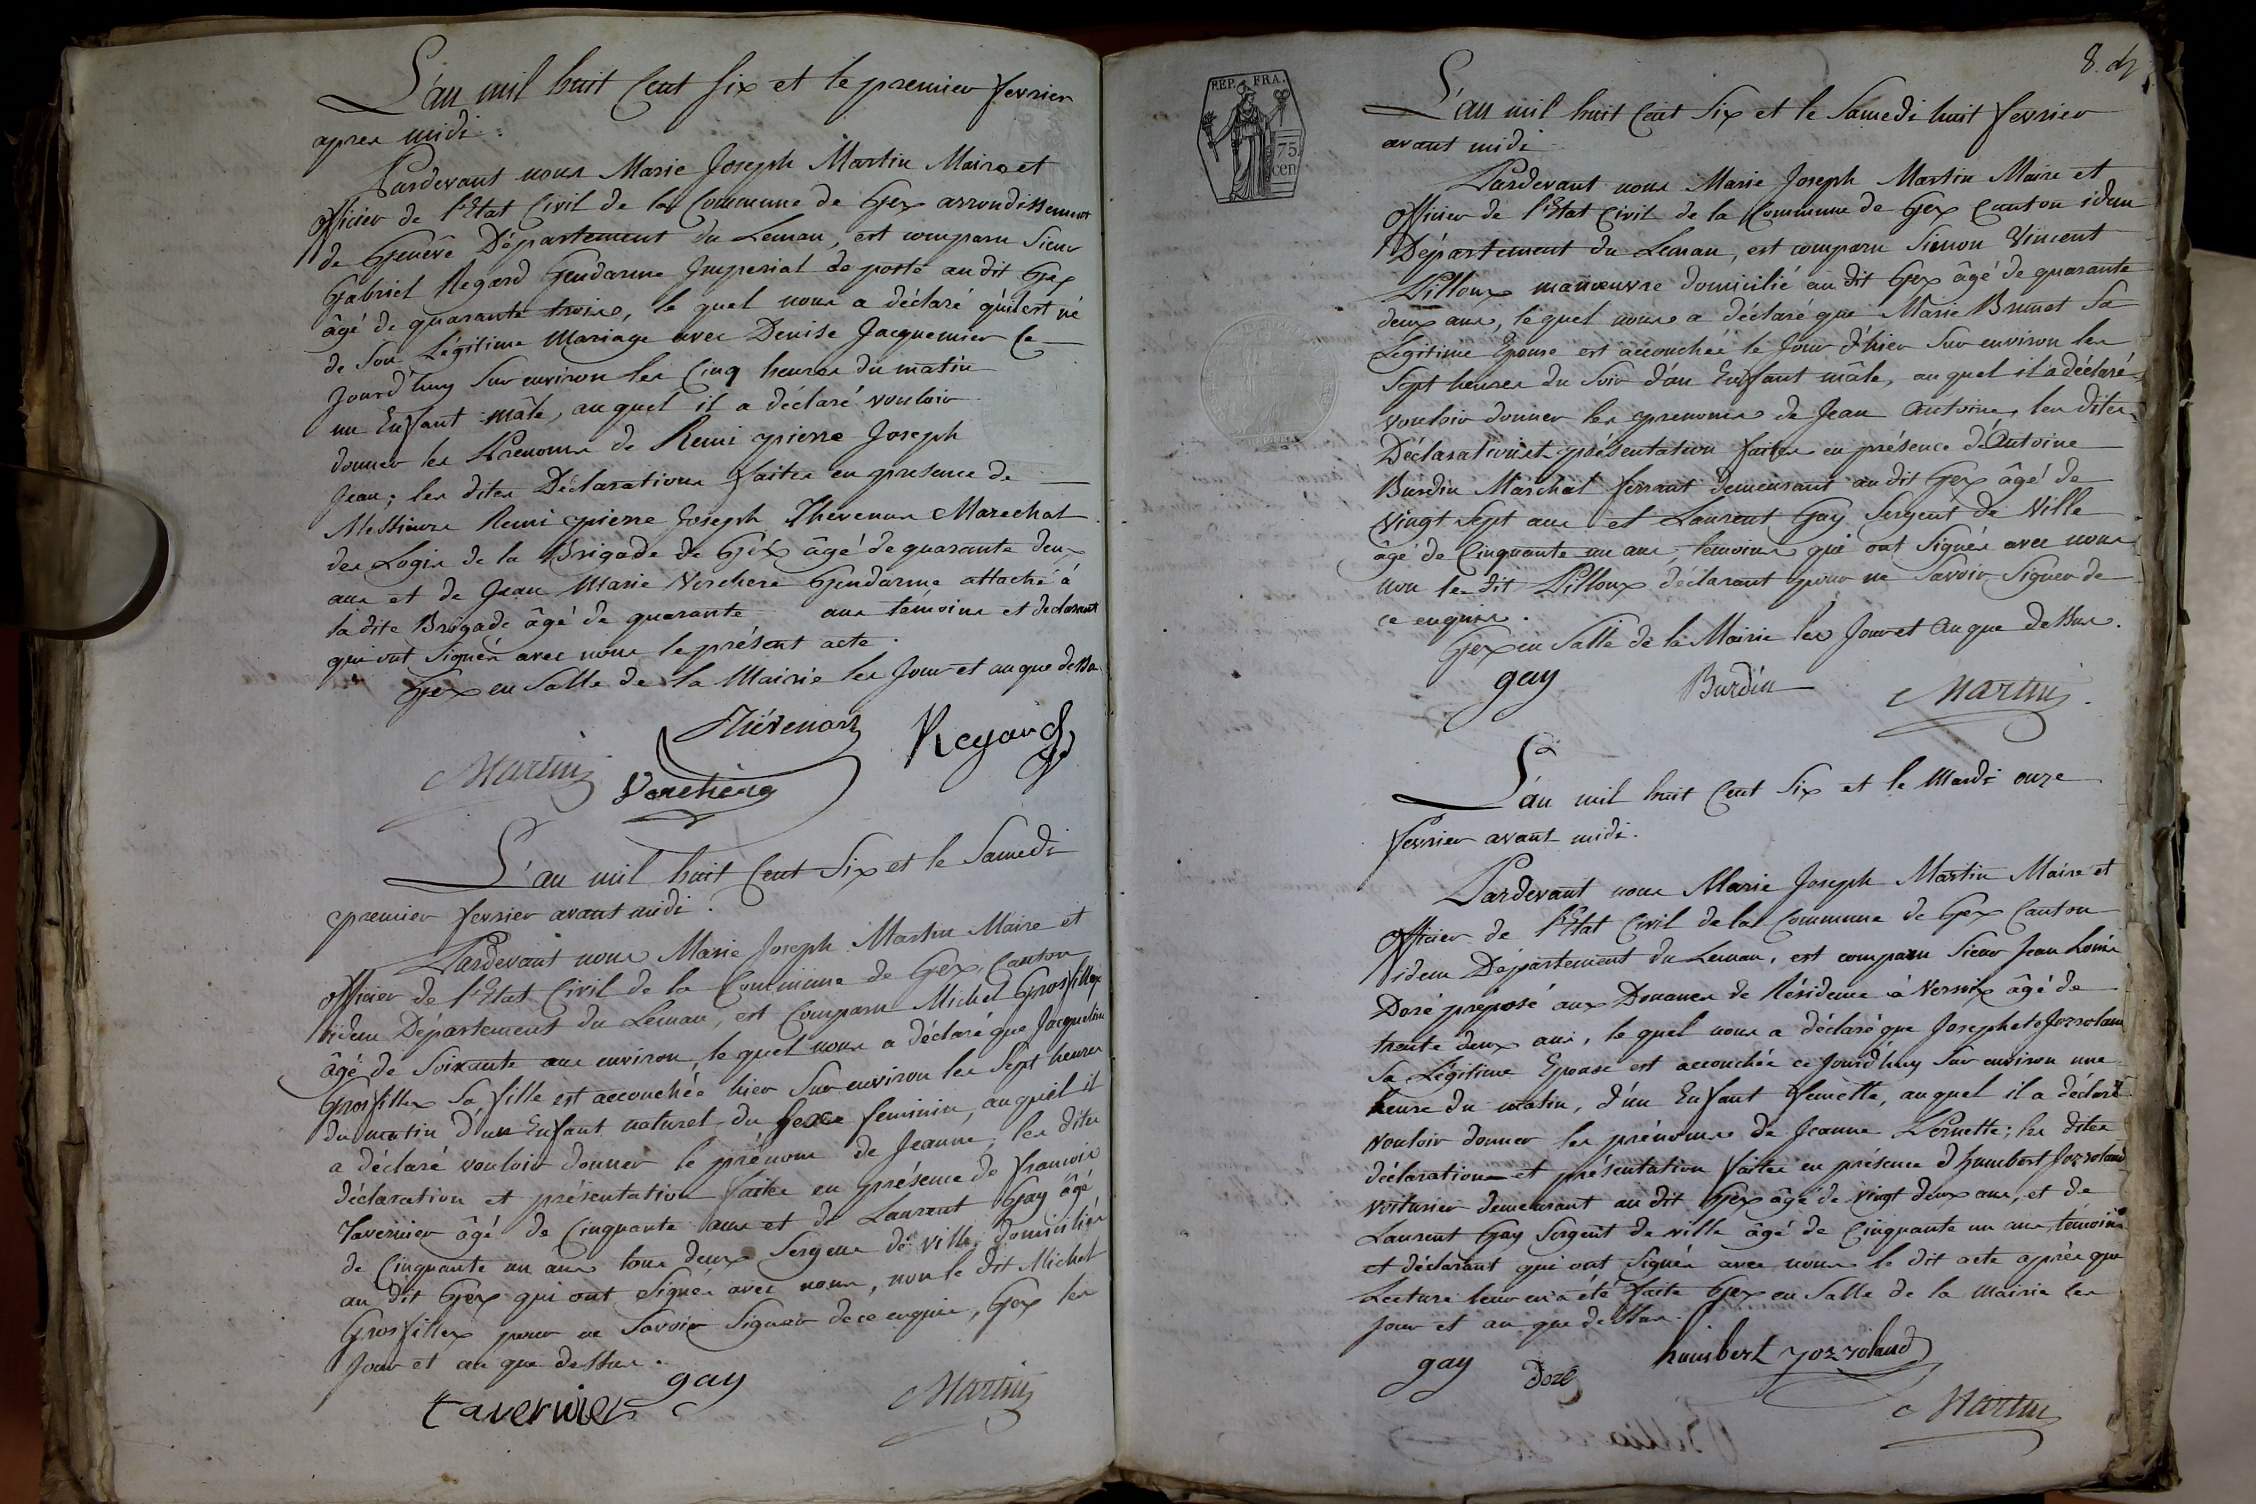 L'an mil huit Cent six et le premier fevrier
apres midi.
Pardevant nous Marie Joseph Martin Maire et
officier de l'Etat Civil de la Commune de Gex arrondissement
de Genève Département du Leman, est comparu Sieur
Gabriel Regard Gendarme Imperial de poste au dit Gex
âgé de quarante trois, le quel nous a déclaré qu'il est né
de son Légitime Mariage avec Denise Jacquemier Ce
Jourd'huy sur environ les Cinq heures du matin
un Enfant mâle, au quel il a déclaré vouloir
donner les Prenoms de Remi pierre Joseph
Jean; les dites Déclarations faites en presence de
Messieurs Remi pierre Joseph Thevenar Marechal
des Logis de la Brigade de Gex âgé de quarante deux
ans et de Jean Marie Verchere Gendarme attaché à
la dite Brigade âgé de quarante ans témoins et déclarant
qui ont signés avec nous le présent acte.
Gex en Salle de la Mairie les Jour et an que dessus
Thévenard
Regard
Martin
Verchère
L'an mil huit Cent Six et le Samedi
premier fevrier avant midi.
Pardevant nous Marie Joseph Martin Maire et
officier de l'Etat Civil de la Commune de Gex, Canton
idem Département du Leman, est Comparu Michel Grosfillex
âgé de Soixante ans environ, le quel nous a déclaré que Jacqueline
Grosfillex Sa fille est accouchée hier Sur environ les Sept heures
du matin d'un Enfant naturel du sexe feminin, auquel il
a déclaré vouloir donner le prénom de Jeanne, les dites
déclaration et présentation faites en présence de françois
Tavernier âgé de Cinquante ans et de Laurent Gay âgé
de Cinquante un ans tous deux Sergens de ville domiciliés
au dit Gex qui ont Signés avec nous, non le dit Michel
Grosfillex pour ne Savoir Signer de ce enquis, Gex les
Jour et an que dessus.
gay
tavernier
Martin
8.
REP. FRA.
75
cen
L'an mil huit Cent Six et le Samedi huit fevrier
avant midi
Pardevant nous Marie Joseph Martin Maire et
Officier de l'Etat Civil de la Commune de Gex Canton idem
Département du Leman, est comparu Simon Vincent
Pilloux manoeuvre domicilié au dit Gex âgé de quarante
deux ans, lequel nous a déclaré que Marie Brunet Sa
Légitime Epouse est accouchée le Jour d'hier Sur environ les
Sept heures du Soir d'un Enfant mâle, au quel il a déclaré
vouloir donner les prenoms de Jean Antoine, les dites
Déclaration et présentation faites en présence d'Antoine
Burdin Marchal ferrant demeurant au dit Gex âgé de
Vingt Sept ans et Laurent Gay Sergent de Ville
âgé de Cinquante un ans témoins qui ont Signés avec nous
non le dit Pilloux déclarant pour ne Savoir Signer de
ce enquis.
Gex en Salle de la Mairie les Jour et An que dessus.
gay
Burdin
Martin
L'an mil huit Cent Six et le Mardi onze
fevrier avant midi.
Pardevant nous Marie Joseph Martin Maire et
Officier de l'Etat Civil de la Commune de Gex Canton
idem Département du Leman, est comparu Sieur Jean Louis
Doré préposé aux Douanes de Résidence à Versoix âgé de
trente deux ans, le quel nous a déclaré que Josephete Jozroland
Sa Légitime Epouse est accouchée ce Jourd'huy Sur environ une
heure du matin, d'un Enfant femelle, auquel il a déclaré
vouloir donner les prénoms de Jeanne Pernette; les dites
déclarations et présentation faites en présence d'humbert Jozroland
voiturier demeurant au dit Gex âgé de vingt deux ans, et de
Laurent Gay Sergent de ville âgé de Cinquante un ans, témoins
et déclarant qui ont Signés avec nous le dit acte après que
Lecture leur en a été faite Gex en Salle de la Mairie les
Jour et an que dessus.
gay
Doré
humbert jozroland
Martin